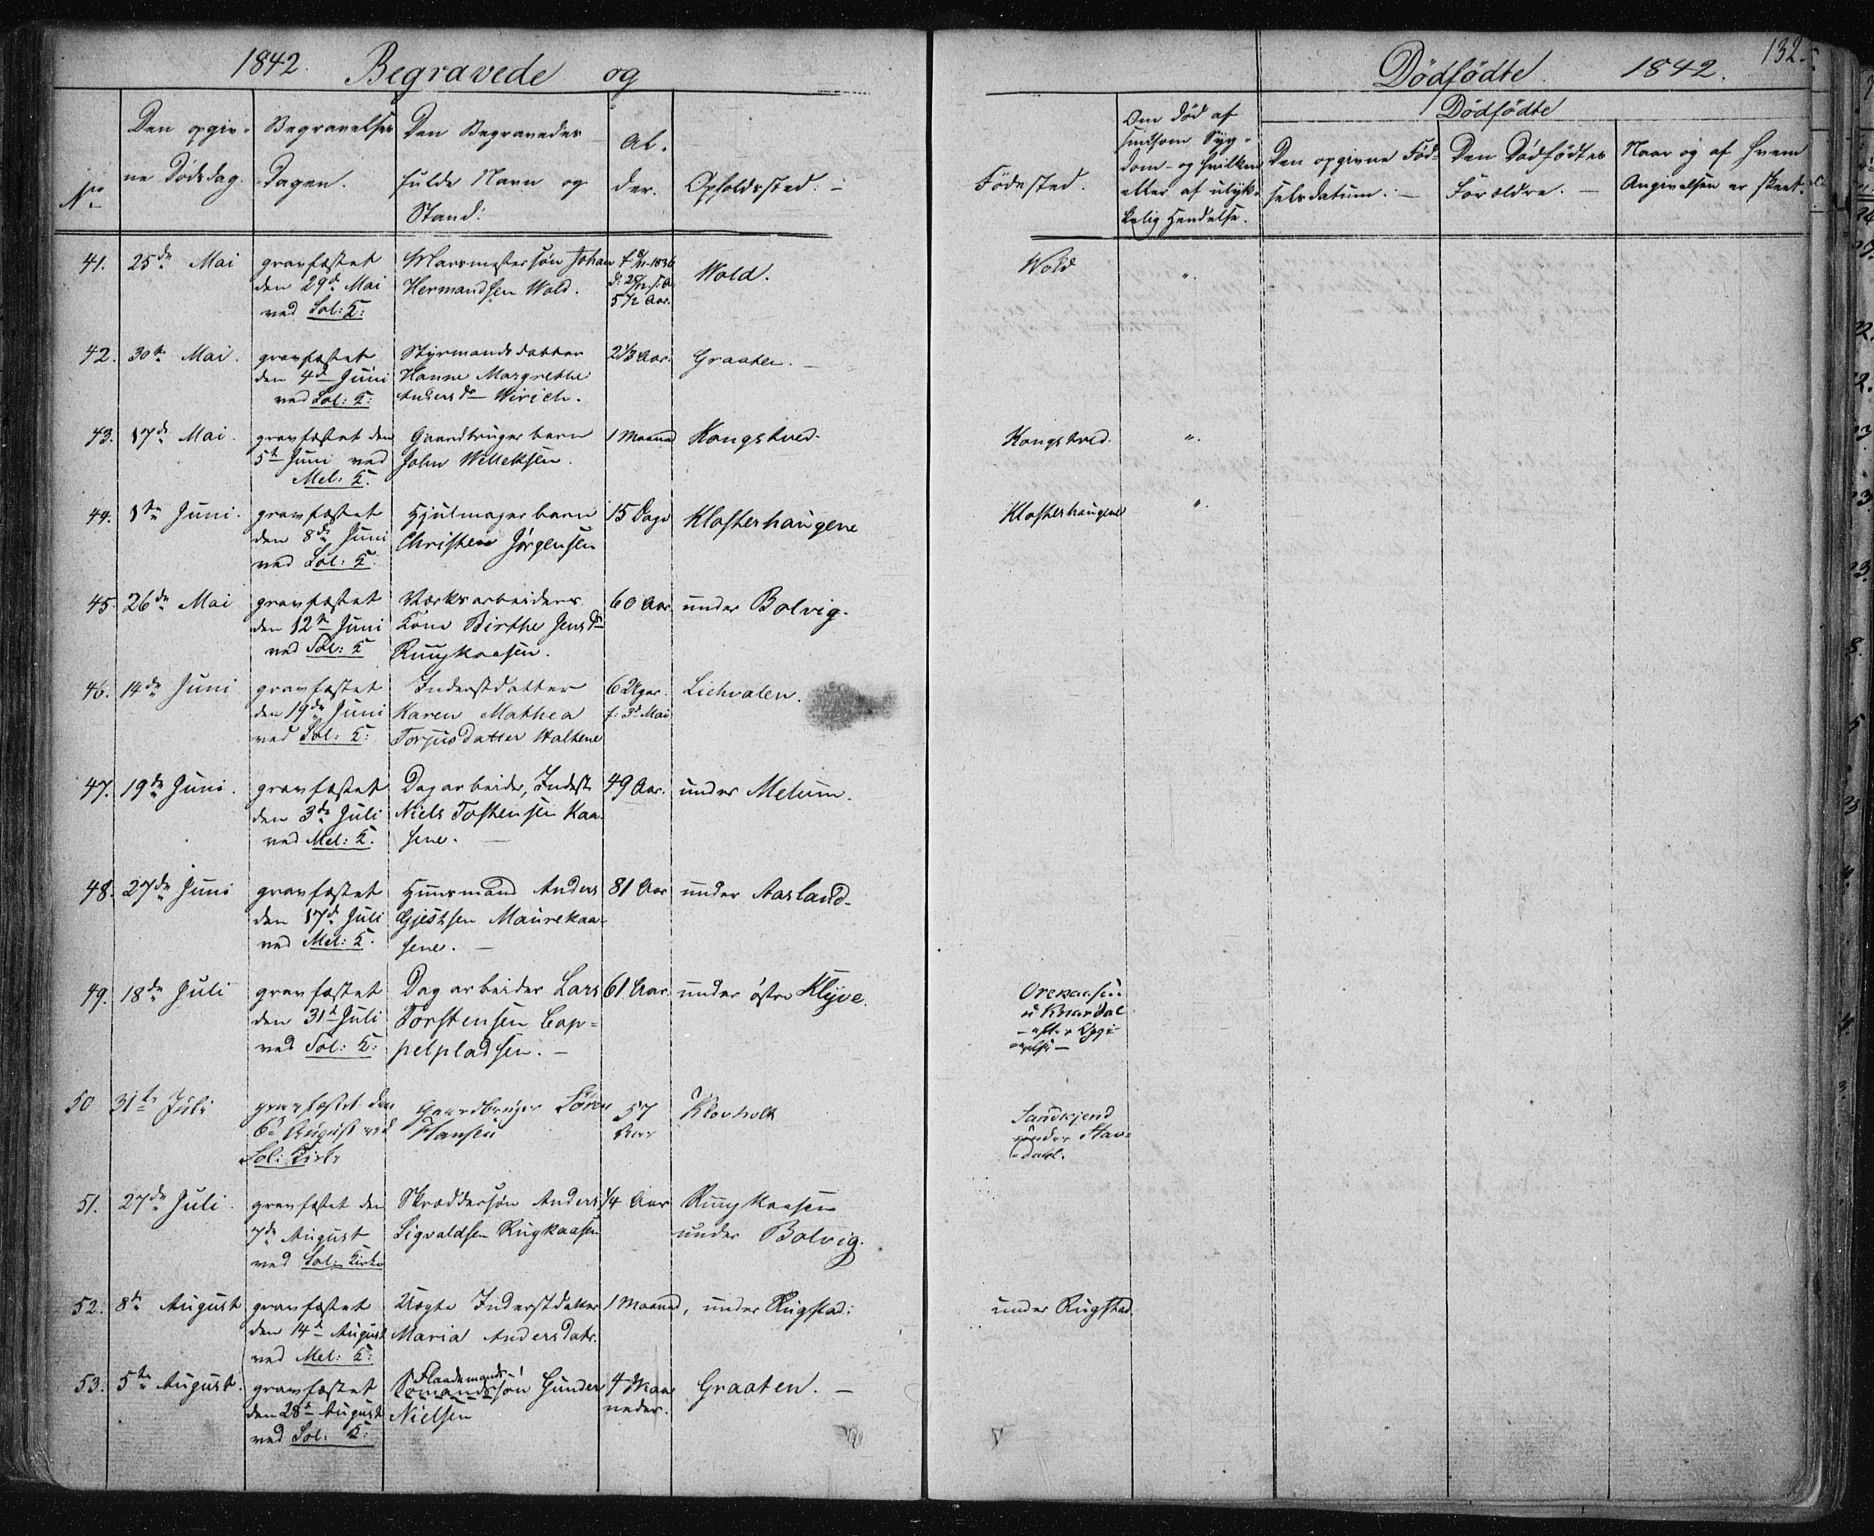 1842. Begravede og
Dødfødte. 1842. 132.
No
Den opgiv-
ne Dødsdag.
Begravelses
Dagen.
Den Begravedes
fulde Navn og
Stand.
Al-
der.
Opholdssted.
Fødested.
Om død af
smitsom Syg-
dom og hvilken
eller af ulyk-
kelig Hendelse.
Dødfødte
Den opgivne Fød-
selsdatum.
Den Dødfødtes
Forældre.
Naar og af hvem
Angivelsen er skeet.
41. 25de Mai
gravfæstet
den 29de Mai
ved Sol: K:
Johan
Hermandsen Wold.
5 1/2 Aar.
Wold.
Wold
"
42. 30te Mai.
gravfæstet
den 4de Juni
ved Sol: K:
Styrmandsdatter
Hanne Margrethe
Andersdr Wirich.
2 1/3 Aar.
Graaten.
43. 17de Mai.
gravfæstet den
5te Juni ved
Mel: K.
Gaardbruger barn
John Willeksen.
1 Maaned
Kongsked.
Kongsked.
"
44. 1ste Juni.
gravfæstet
den 8de Juni
ved Sol: K.
Hjulmager barn
Christen Jørgensen
15 Dage
Klosterhaugene
Klosterhaugene
"
45. 26de Mai
gravfæstet
den 12te Juni
ved Sol: K
Værksarbeiders
Kone Birthe Jensdr
Rugkaasen.
60 Aar.
under Bolvig.
46. 14de Juni
gravfæstet
den 19de Juni
ved Sol: K:
Inderstdatter
Karen Mathea
Torjusdatter Holtene
6 Uger.
f: 3d Mai
Lichvalen.
47. 19de Juni.
gravfæstet
den 3de Juli
ved Mel: K.
Dagarbeider, Inderst
Niels Tostensen Kaa-
sene.
49 Aar.
under Melum.
48. 27de Juni
gravfæstet
den 17de Juli
ved Mel: K.
Huusmand Anders
Gjestsen Maurekaa-
sene.
81 Aar
under Aasland.
49. 18de Juli
gravfæstet
den 31te Juli
ved Sol: K:
Dagarbeider Lars
Torstensen Cap-
pelpladsen.
61 Aar.
under østre Klyve.
50 31te Juli
gravfæstet den
6te August ved
Sol: Kirke
Gaardbruger Søren
Hansen
57
Aar
Klovholt
Sandkjend
under Stav-
dal.
51. 27de Juli.
gravfæstet den
7de August
ved Sol: Kirke
Skræddersøn Anders
Sigvaldsen Rugkaasen
1/4 Aar
Rugkaasen
under Bolvig.
52. 8de August
gravfæstet
den 14de August
ved Mel: K:
Uægte Inderstdatter
Maria Andersdatr.
1 Maaned,
under Rugstad:
under Rugstad.
53. 5te August.
gravfæstet
den 28de August
ved Sol: K:
Flaademands-
Sømandssøn Gunder
Nielsen
4 Maa-
neder.
Graaten.